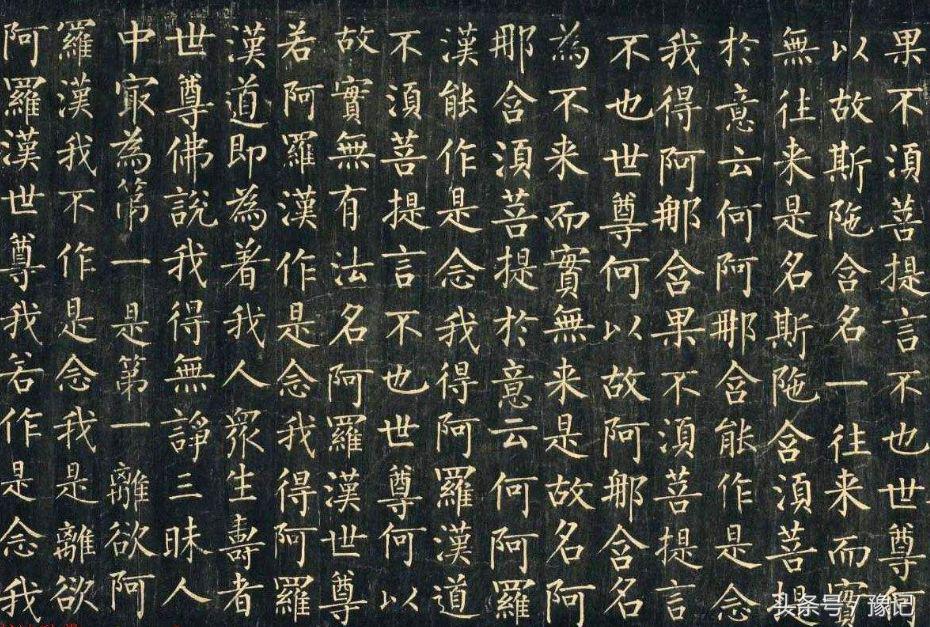 果不須菩提言不也世尊何
以故斯陁含名一往来而實
無往来是名斯陁含須菩提
於意云何阿那含能作是念
我得阿那含果不須菩提言
不也世尊何以故阿那含名
為不来而實無来是故名阿
那含須菩提於意云何阿羅
漢能作是念我得阿羅漢道
不須菩提言不也世尊何以
故實無有法名阿羅漢世尊
若阿羅漢作是念我得阿羅
漢道即為著我人衆生壽者
世尊佛說我得無諍三昧人
中冣為第一是第一離欲阿
羅漢我不作是念我是離欲
阿羅漢世尊我若作是念我
头条号 / 豫记